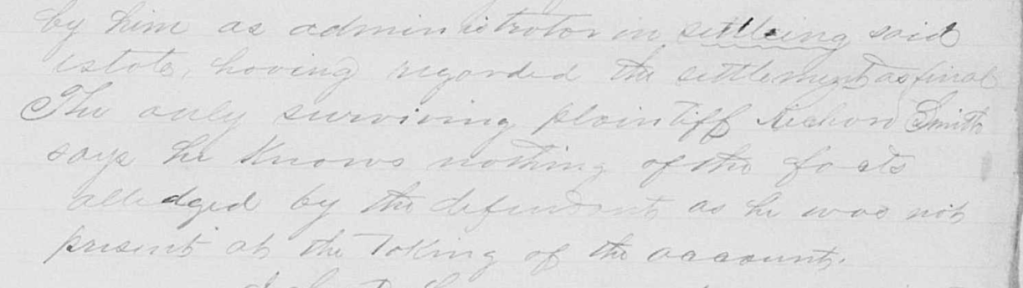 by him as administrator in settling said
estate, having regarded the settlement as final
The only surviving plaintiff Smith
says he knows nothing of the facts
alledged by the defendants as he was not
present at the taking of the account.